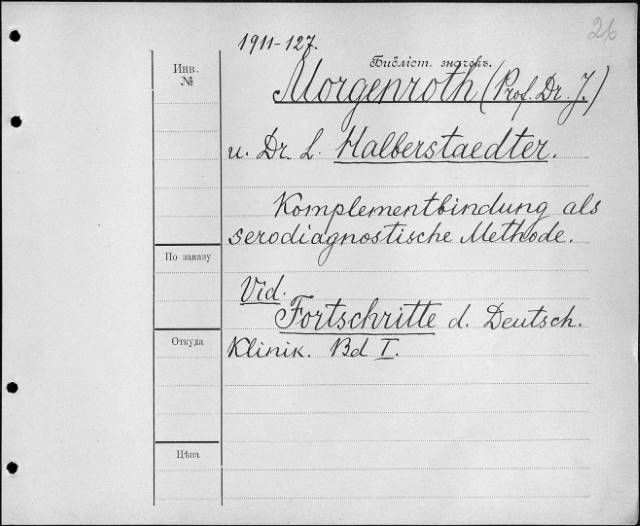 26
1911-127.
Библіот. значекъ.
Инв.
№
Morgenroth (Prof. Dr. J.)
u. Dr. L. Halberstaedter.
Komplementbindung als
serodiagnostische Methode.
По заказу
Vid.
Fortschritte d. Deutsch.
Откуда
Klinik. Bd I.
Цѣна